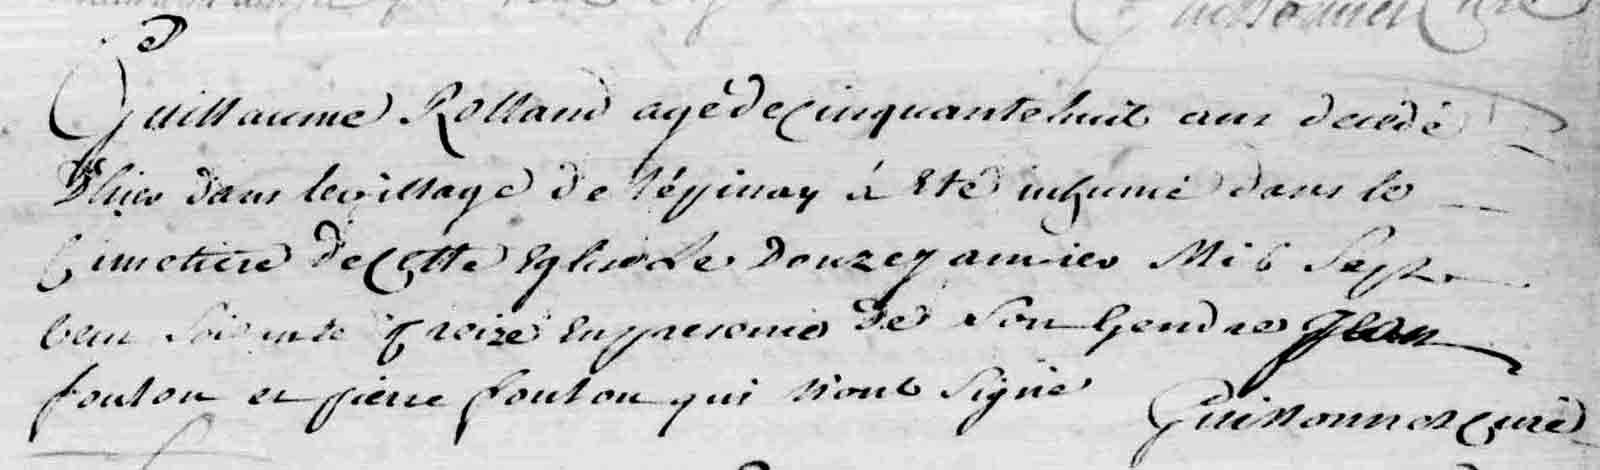 Guissonnier Curé
Guillaume Rolland agé de Cinquante huit ans decedé
D'hier dans le village de l'épinay à Eté inhumé dans le
Cimetiere de Cette Eglise le Douze janvier Mil Sept
Cent Soixante treize En presence de Son Gendre Jean
fouton et pierre fouton qui n'ont Signé
Guissonnier Curé